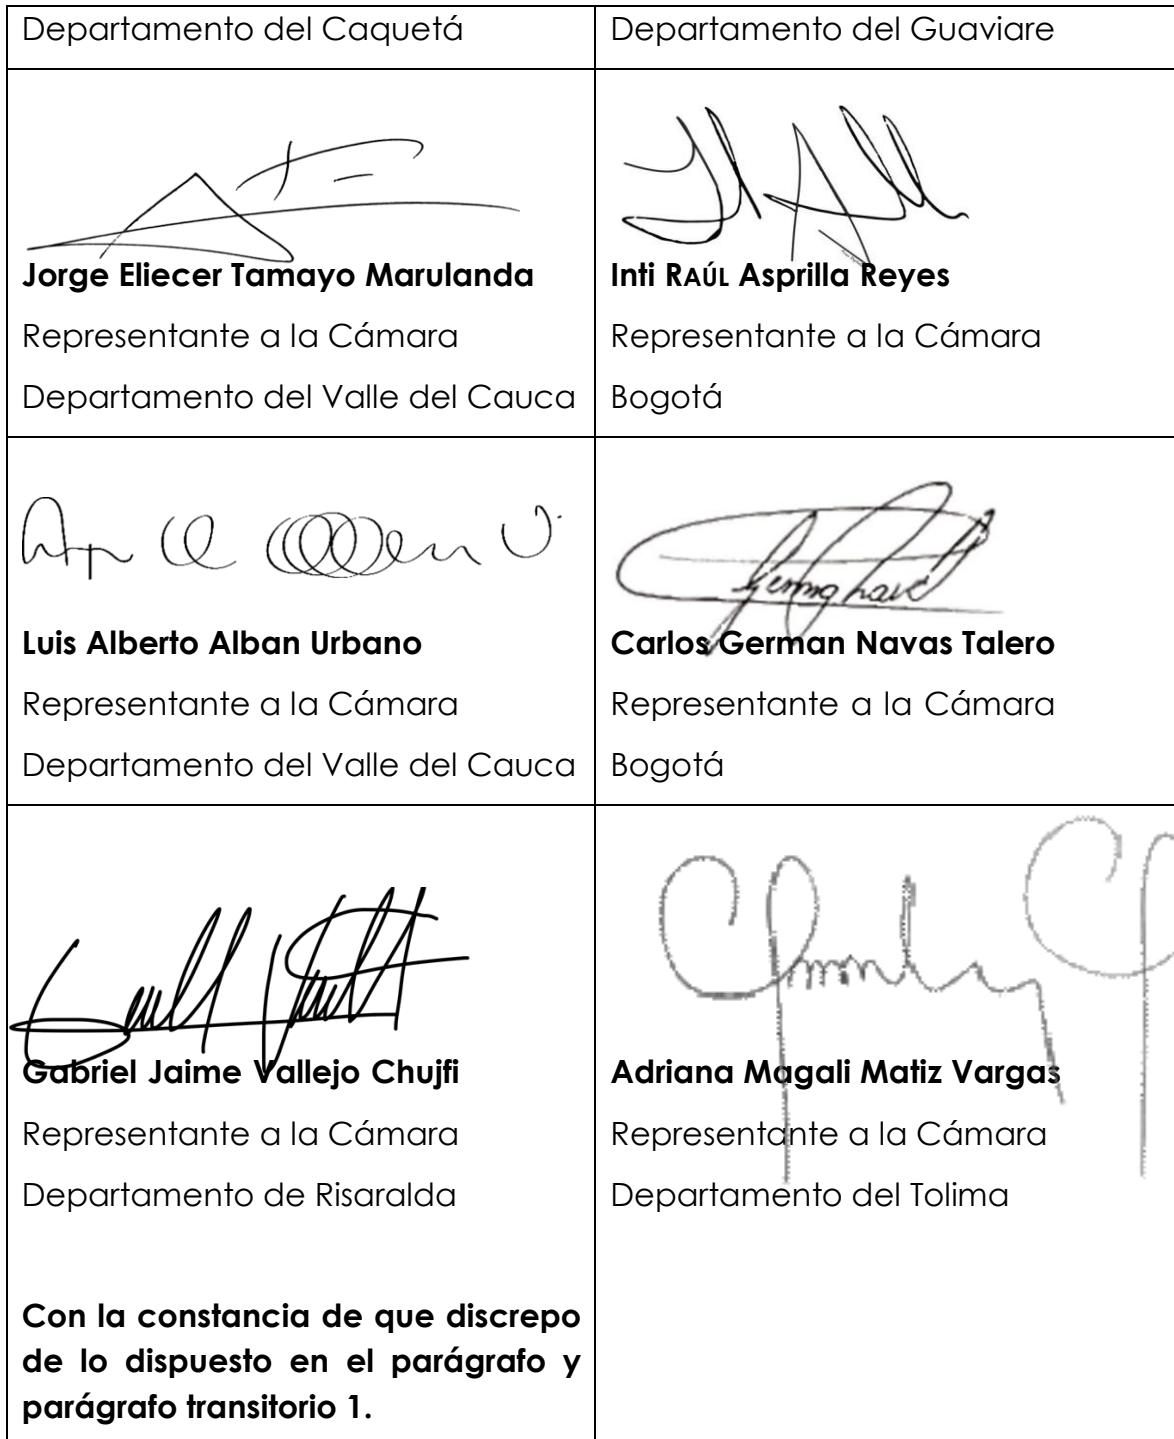 Departamento del Caquetá
Departamento del Guaviare
Jorge Eliecer Tamayo Marulanda
Representante a la Cámara
Departamento del Valle del Cauca
Inti RAÚL Asprilla Reyes
Representante a la Cámara
Bogotá
Luis Alberto Alban Urbano
Representante a la Cámara
Departamento del Valle del Cauca
Carlos German Navas Talero
Representante a la Cámara
Bogotá
Gabriel Jaime Vallejo Chujfi
Representante a la Cámara
Departamento de Risaralda
Con la constancia de que discrepo
de lo dispuesto en el parágrafo y
parágrafo transitorio 1.
Adriana Magali Matiz Vargas
Representante a la Cámara
Departamento del Tolima